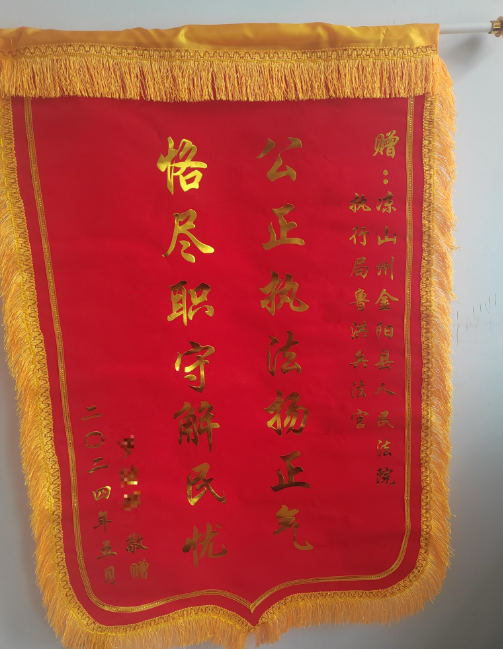 赠：凉山州金阳县人民法院
执行局鲁法兵法官
公正执法扬正气
恪尽职守解民忧
敬赠
二〇二四年五月